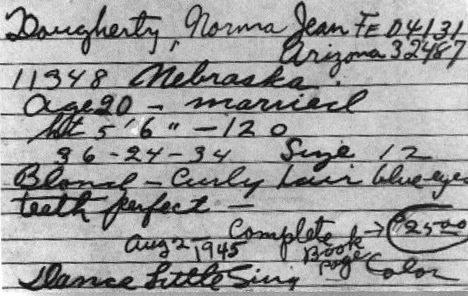 Dougherty, Norma Jean FE 04131
Arizona 32487
11348 Nebraska
age 20 - married
ht 5'6" - 120
36-24-34 Size 12
Blond - Curly hair blue eyes
teeth perfect -
Aug 2, 1945 Complete → $25.00
Book page Color
Dance Little Sing